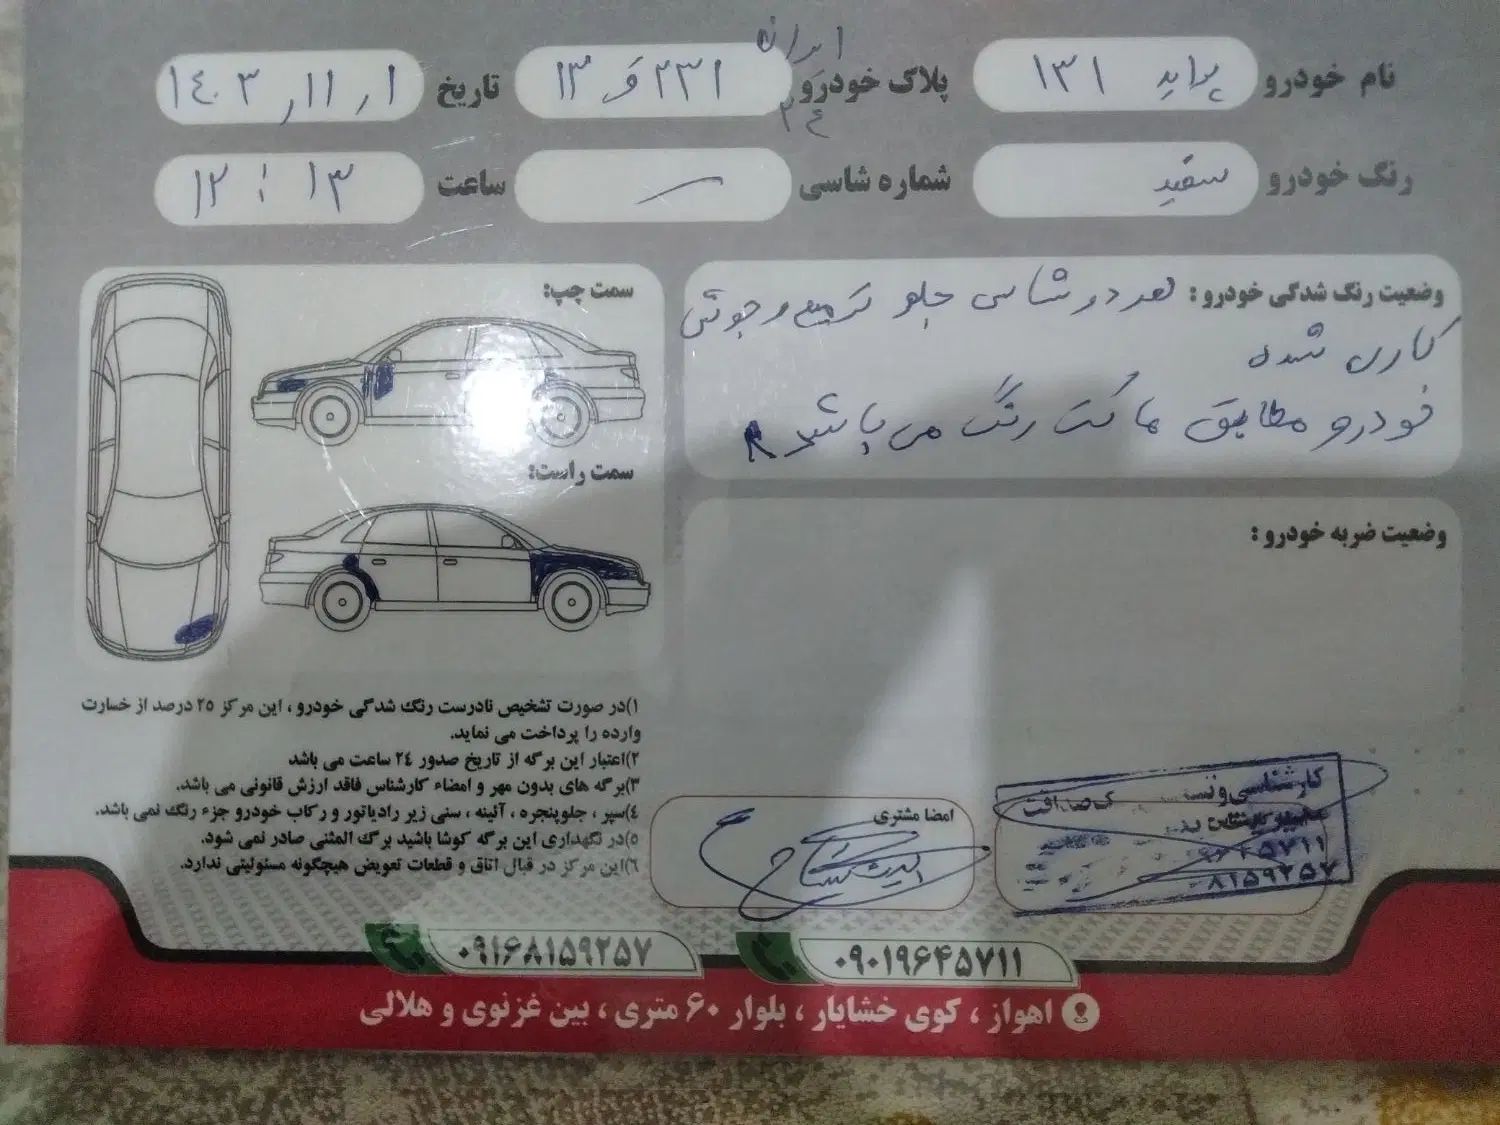 نام خودرو پراید ۱۳۱ پلاک خودرو ۲۳۱ و ۱۳ ایران ۲۴ تاریخ ۱۴۰۳ ر ۱۱ ر ۱
رنگ خودرو سفید شماره شاسی — ساعت ۱۲ : ۱۳
وضعیت رنگ شدگی خودرو : هر دو شاسی جلو ترمیم و جوش
کاری شده
خودرو مطابق ماکت رنگ می باشد
وضعیت ضربه خودرو :
سمت چپ:
سمت راست:
۱)در صورت تشخیص نادرست رنگ شدگی خودرو ، این مرکز ۲۵ درصد از خسارت
وارده را پرداخت می نماید.
۲)اعتبار این برگه از تاریخ صدور ۲٤ ساعت می باشد
۳)برگه های بدون مهر و امضاء کارشناس فاقد ارزش قانونی می باشد.
٤)سپر ، جلوپنجره ، آئینه ، سنی زیر رادیاتور و رکاب خودرو جزء رنگ نمی باشد.
۵)در نگهداری این برگه کوشا باشید برگ المثنی صادر نمی شود.
۶)این مرکز در قبال اتاق و قطعات تعویض هیچگونه مسئولیتی ندارد.
امضا مشتری
کارشناسی و
صداقت
۰۹۰۱۹۶۴۵۷۱۱
۰۹۱۶۸۱۵۹۲۵۷
اهواز ، کوی خشایار ، بلوار ۶۰ متری ، بین غزنوی و هلالی